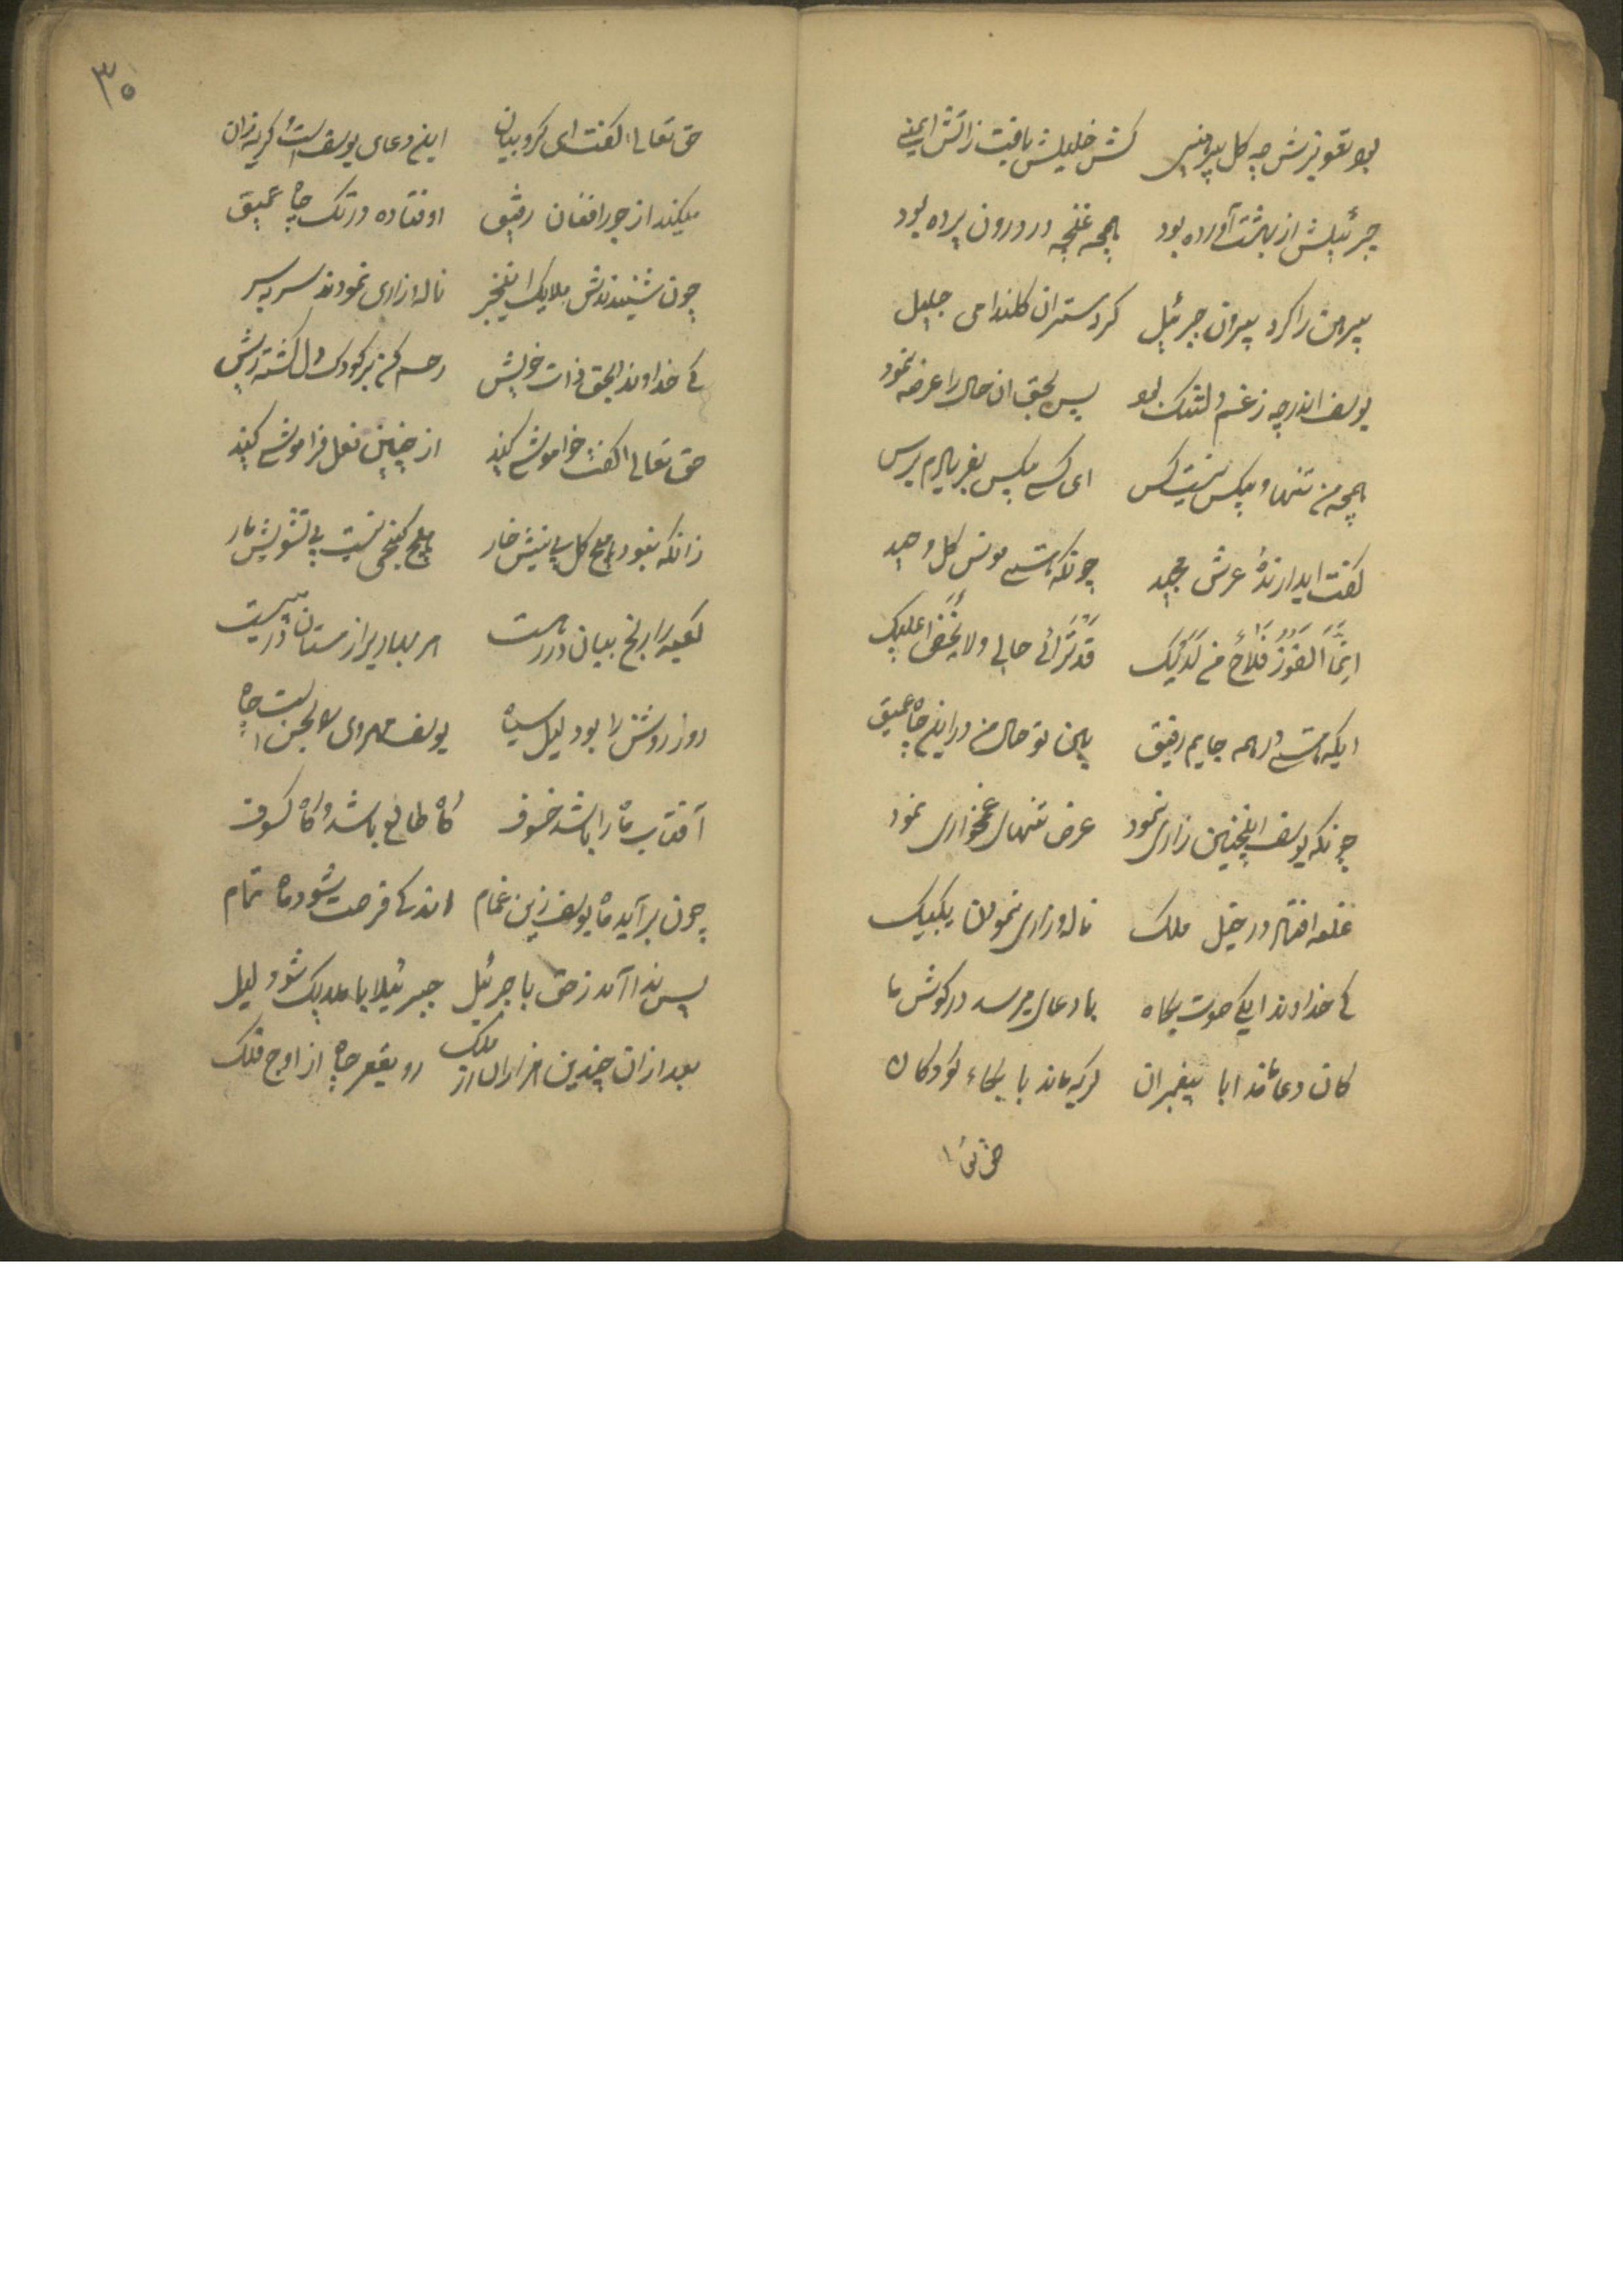 بود تعویذش چه گل پیراهنی کش خلیلش یافت ز آتش ایمنی
جبرئیلش از بهشت آورده بود همچه غنچه در درون پرده بود
پیرهن را کرد بیرون جبرئیل کرد ستر آن گلندامی جلیل
یوسف اندر چه ز غم دلتنگ بود پس بحق آن حال را عرضه نمود
همچه من تنها و بیکس نیست کس ای کس بیکس بفریادم برس
گفت ای دارندهٔ عرش مجید چونکه هستی مونس کل وحید
انما الفوز فلاح من لدیک قد تری حالی ولا یخفی علیک
ایکه هستی در همه جایم رفیق ببین تو حال من در این چاه عمیق
چونکه یوسف اینچنین زاری نمود عرض تنهای غمخواری نمود
غلغه افتاد در خیل ملک ناله و زاری نمودن یکبیک
کی خداوندا یکی صوت بکاه با دعای میرسد در گوش ما
کان دعا ماند ابا پیغمبران گریه ماند با بکاء کودکان
حق تعا
۳۰
حق تعالی گفت ای کروبیان این دعای یوسف است و گریه زان
میکند از جور افغان رفیق اوفتاده در تک چاه عمیق
چون شنیدندش ملایک این خبر ناله و زاری نمودند سر بسر
کی خداوند بحق ذات خویش رحم کن بر کودک دل گشته ریش
حق تعالی گفت خاموشی کنید از چنین فعل فراموشی کنید
زانکه نبود هیچ گل بی نیش خار هیچ گنجی نیست بی تشویش مار
روز روشن را بود لیل سیاه یوسف مهروی
آفتاب ماه را باشد خسوف گاه طالع باشد و گاه کسوف
چون برآید ماه یوسف زین غمام اندکی فرصت شود ماه تمام
پس ندا آمد ز حق با جبرئیل جبرئیلا با ملایک شو دلیل
بعد از آن چندین هزاران از ملک رو بقعر چاه از اوج فلک